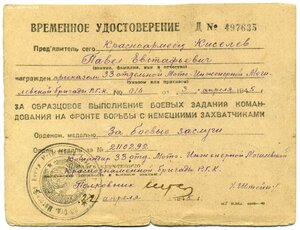 ВРЕМЕННОЕ УДОСТОВЕРЕНИЕ Д № 497635
Пред'явитель сего Красноармеец Киселев
Павел Евстафьевич
(звание, фамилия, имя и отчество)
награжден приказом 33 отдельной Мото-Инженерной Моги-
левской бригады Р.Г.К. № 010 3 апреля 1945
ЗА ОБРАЗЦОВОЕ ВЫПОЛНЕНИЕ БОЕВЫХ ЗАДАНИЙ КОМАН-
ДОВАНИЯ НА ФРОНТЕ БОРЬБЫ С НЕМЕЦКИМИ ЗАХВАТЧИКАМИ
Орденом, медалью За боевые заслуги
Орден, медаль за № 2110292
Командир 33 отд. Мото-Инженерной Могилевской
Краснознаменной бригады Р.Г.К.
Полковник
апреля